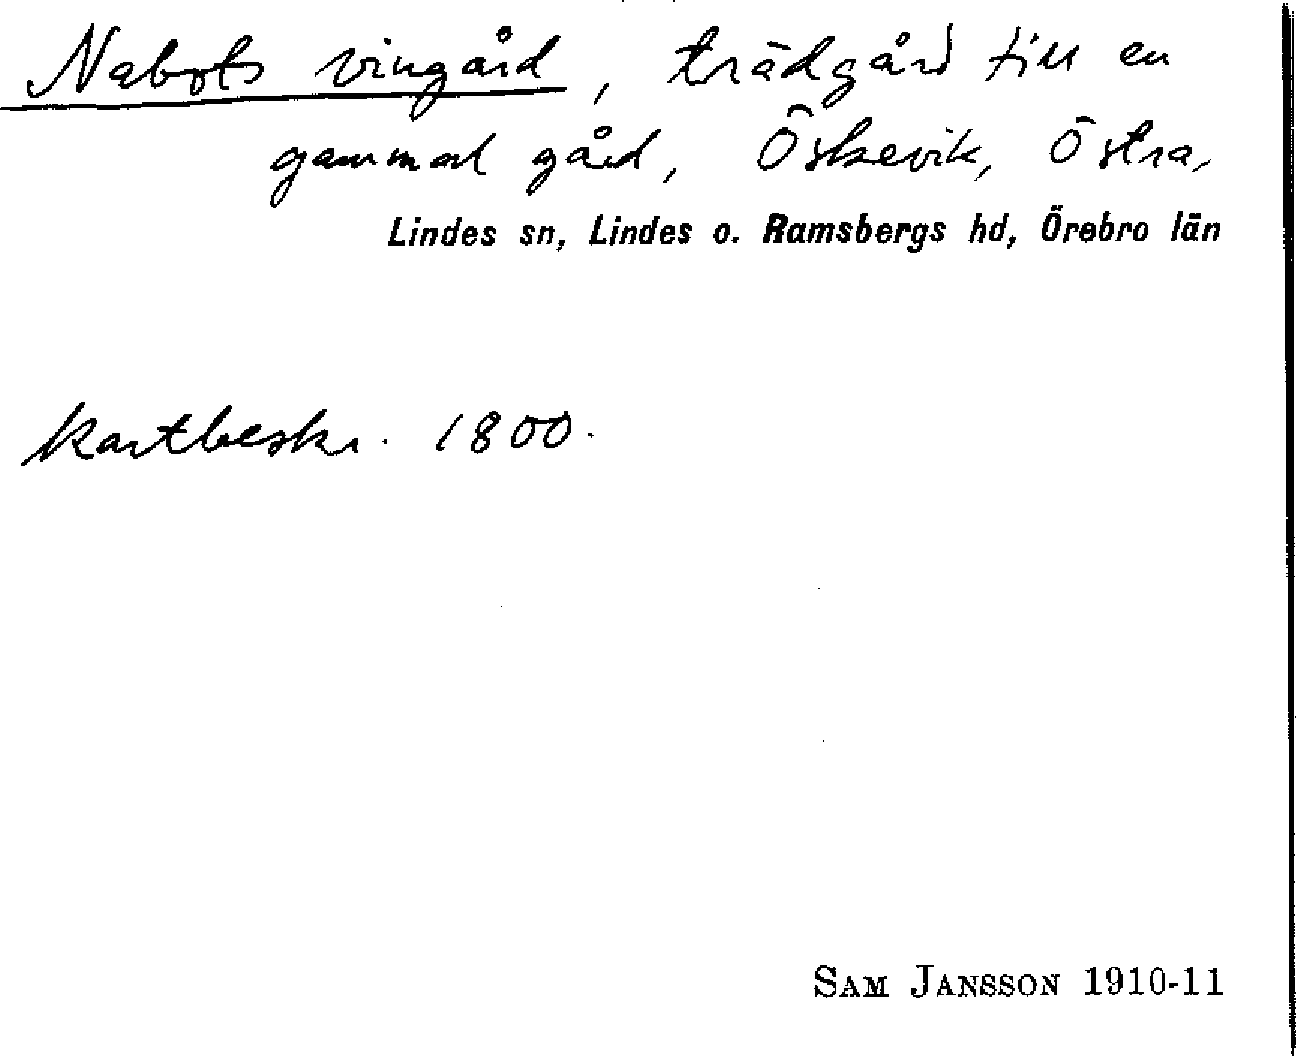 Nabots vingård, trädgård till en
gammal gård, Öskevik, Östra,
Lindes sn, Lindes o. Ramsbergs hd, Örebro län
Kartbeskr. 1800.
SAM JANSSON 1910-11